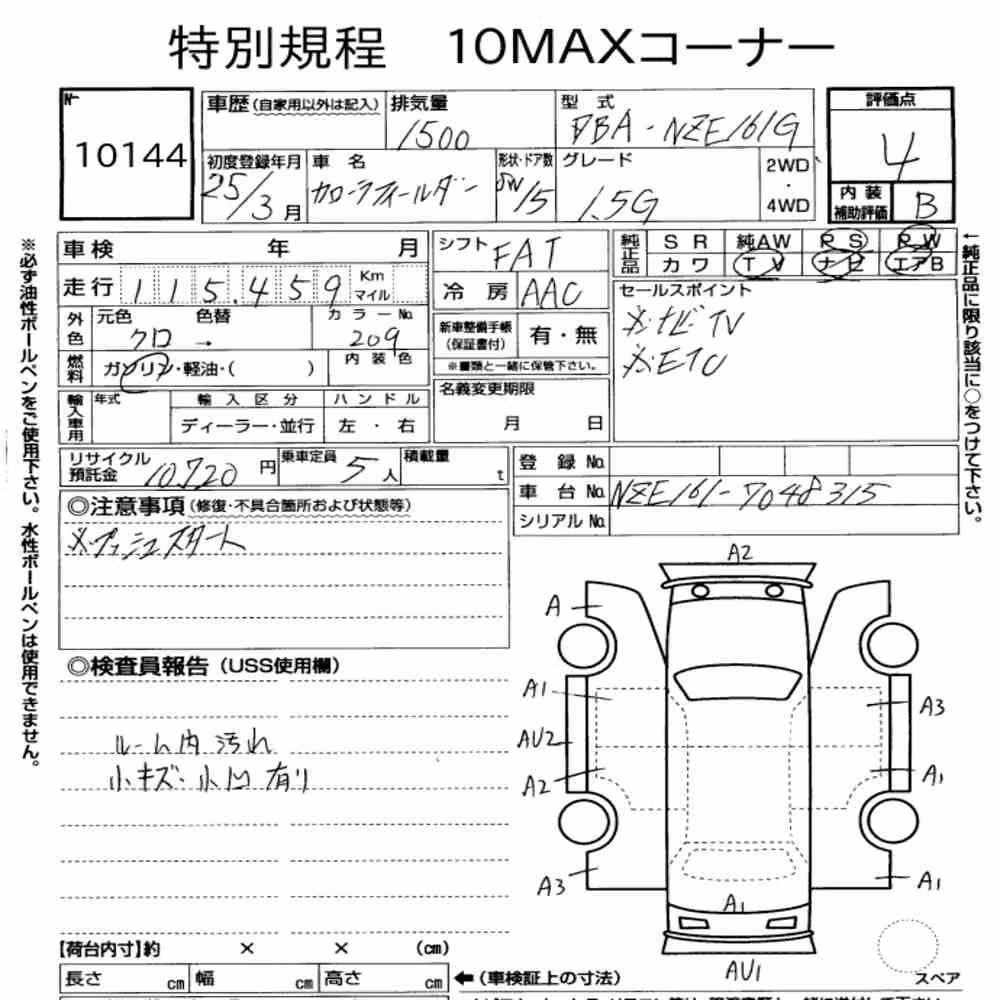 特別規程　10MAXコーナー
№ 10144
車歴(自家用以外は記入)
排気量
1500
型 式
DBA-NZE161G
評価点
4
内装補助評価
B
初度登録年月
25/3月
車 名
カローラフィールダー
形状・ドア数
SW/5
グレード
1.5G
2WD
・
4WD
車 検　年　月
走行 115,459 Km マイル
外色 元色 色替 カラーNo.
クロ → 209
燃料 ガソリン・軽油・(　) 内装色
輸入車用 年式 輸入区分 ハンドル
ディーラー・並行 左・右
リサイクル預託金 10,720円 乗車定員 5人 積載量 t
シフト FAT
冷房 AAC
新車整備手帳(保証書付) 有・無
※書類と一緒に保管下さい。
名義変更期限
月　日
純正品 SR 純AW PS PW
カワ TV ナビ エアB
セールスポイント
※ナビTV
※ETC
登録No.
車台No. NZE161-7048315
シリアルNo.
◎注意事項(修復・不具合箇所および状態等)
※プッシュスタート
◎検査員報告(USS使用欄)
ルーム内 汚れ
小キズ・小凹 有り
※必ず油性ボールペンをご使用下さい。水性ボールペンは使用できません。
←純正品に限り該当に○をつけて下さい。
A2
A
A1
A3
AU2
A2
A1
A3
A1
A1
AU1
スペア
【荷台内寸】約 × × (cm)
長さ cm 幅 cm 高さ cm ←(車検証上の寸法)